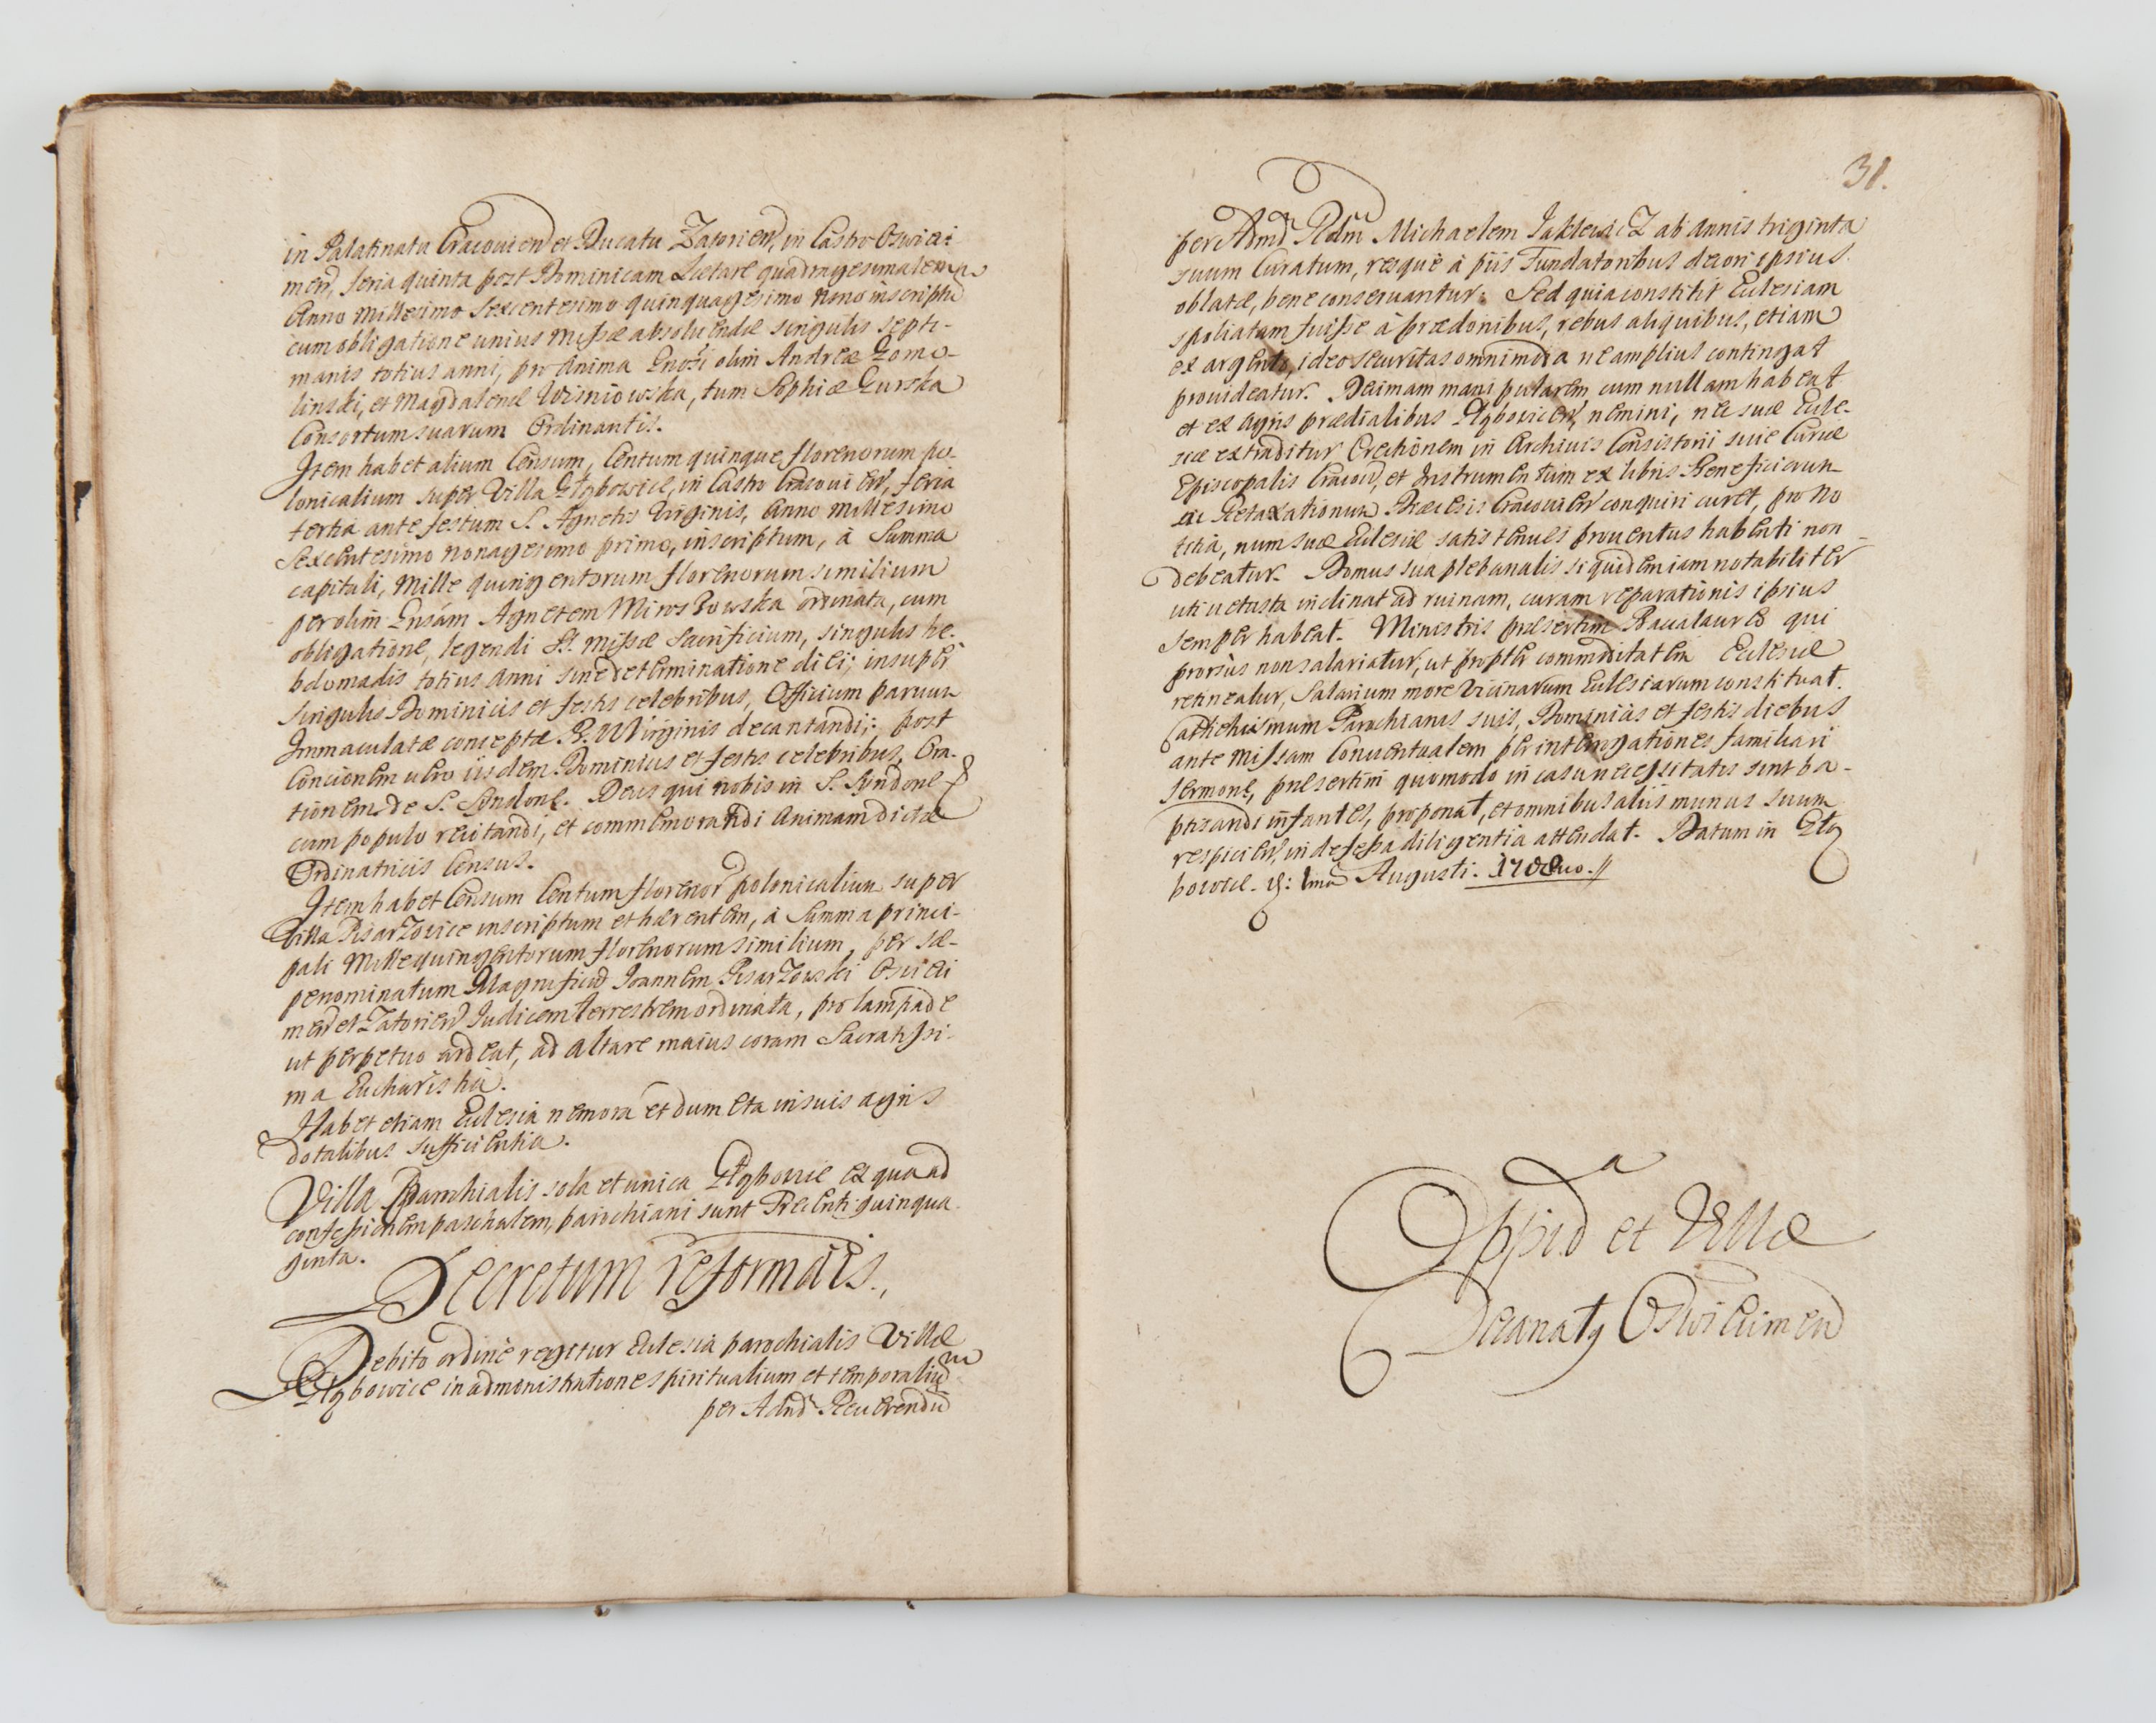 in Palatinatu Cracouien et Ducatu Zatorien, in Castro Oswieci-
men, feria quinta post Dominicam Laetare quadragesimalem
Anno Millesimo Sexcentesimo quinquagesimo nono inscriptu
cum obligatione unius Missae absoluendae singulis septi-
manis totius anni, pro Anima Gnosi olim Andreae Gomo-
linski, et Magdalenae Wisniowska, tum Sophiae Gurska
Consortum suarum Ordinantis.
Item habet alium Censum, Centum quinque florenorum po-
lonicalium super Villa Głębowice, in Castro Cracouien, feria
tertia ante festum S. Agnetis Virginis, Anno Millesimo
Sexcentesimo nonagesimo primo, inscriptum, à Summa
capitali, Mille quingentorum florenorum similium
per olim Gnsam Agnetem Miroszowska ordinata, cum
obligatione, legendi SS. Missae Sacrificium, singulis he-
bdomadis totius Anni sine determinatione diei; insuper
singulis Dominicis et festis celebribus, Officium paruum
Immaculatae conceptae B. V. Virginis decantandi; post
Concionem uero iisdem Dominicis et festis celebribus, Ora-
tionem de S. Syndone. Deus qui nobis in S. Syndone &
cum populo recitandi, et commemorandi Animam dictae
Ordinatricis Census.
Item habet Censum Centum florenor polonicalium super
Villa Pisarzowice inscriptum et haerentem, à Summa princi-
pali Mille quingentorum florenorum similium, per sae-
penominatum Magnificu Joannem Pisarzowski Osvieci
men et Zatorien Judicem terrestrem ordinata, pro lampade
ut perpetuo ardeat, ad altare maius coram Sacratissi-
ma Eucharistia.
Habet etiam Ecclesia nemora et dumeta in suis agris
dotalibus sufficientia.
Villa Parochialis sola et unica Głębowice ex qua ad
confessionem paschalem, parochiani sunt Trecenti quinqua
ginta.
Decretum reformãis.
Debito ordine regitur Ecclesia parochialis Villae
Głębowice in administratione spiritualium et temporaliũ
per Adnd Reuerendũ
31.
per Admd Rdum Michaelem Jaklewicz ab annis triginta
suum Curatum, resque à piis Fundatoribus decori ipsius
oblatae, bene conseruantur. Sed quia constitit Ecclesiam
spoliatam fuisse à praedonibus, rebus aliquibus, etiam
ex argento, ideo securitas omnimoda ne amplius contingat
prouideatur. Decimam manipularem cum nullam habeat
et ex agris praedialibus Głębowicen, nemini, nec suae Eccle-
siae extraditur Erectionem in Archiuis Consistorii siue Curiae
Episcopalis Cracou, et Instrumentum ex libris Beneficiorum
ac Retaxationum Dioecesis Cracouien conquiri curet, pro no
titia, num suae Ecclesiae satis tenues prouentus habenti non
debeatur. Domus sua plebanalis siquidem iam notabiliter
uti uetusta inclinat ad ruinam, curam reparationis ipsius
semper habeat. Ministris praesertim Bacalaureo qui
prorsus non salariatur, ut propter commoditatem Ecclesiae
retineatur, Salarium more Vicinarum Ecclesiarum constituat.
Cathechismum Parochianis suis, Dominicis et festis diebus
ante Missam Conuentualem per interrogationes familiari
sermone, praesertim quomodo in casu necessitatis sint ba-
ptisandi infantes, proponat, et omnibus aliis munus suum
respicien, indefessa diligentia attendat. Datum in Głę
bowice. Augusti.
Oppida et Villae
Decanatus Oswiecimen